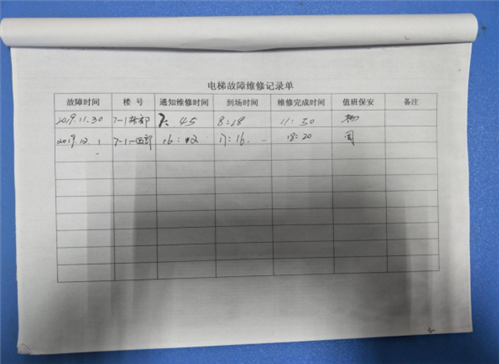 电梯故障维修记录单
故障时间 楼号 通知维修时间 到场时间 维修完成时间 值班保安 备注
2019.11.30 7-1东部 7:45 8:18 11:30 杨
2019.12.1 7-1-西部 16:12 17:16 18:20 周